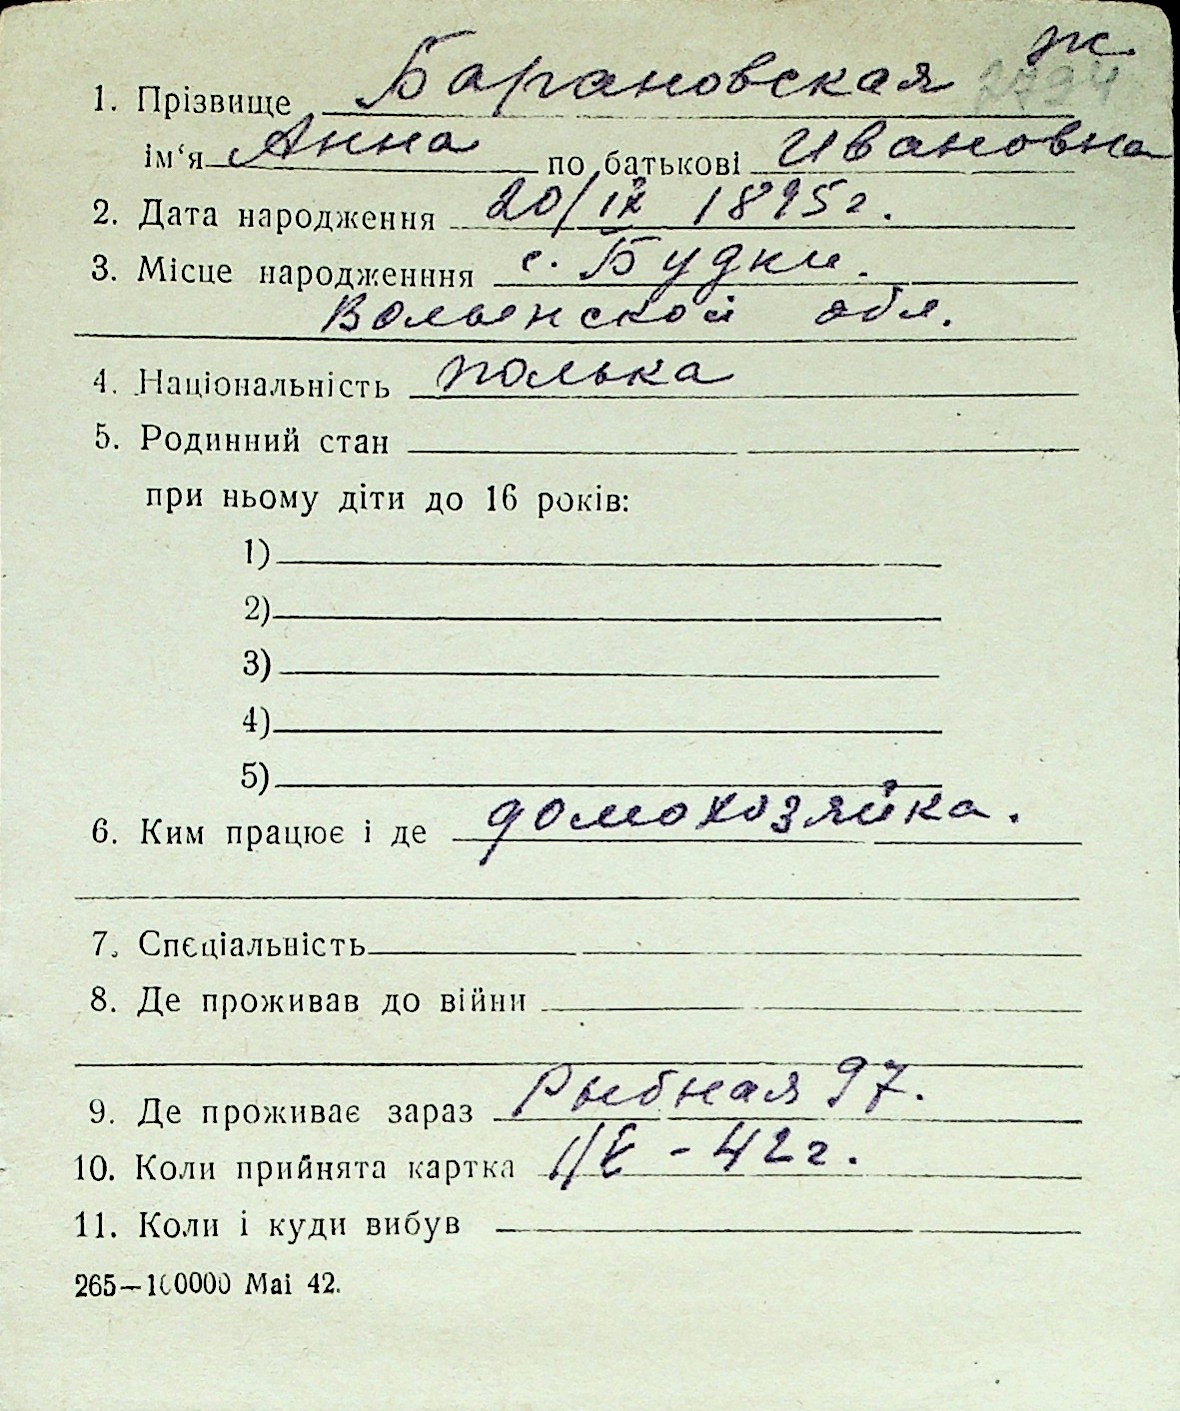 ж.
1. Прізвище Барановская
ім‘я Анна по батькові Ивановна
2. Дата народження 20/IX 1895г.
3. Місце народженння с. Будки.
Волынской обл.
4. Національність полька
5. Родинний стан
при ньому діти до 16 років:
1)
2)
3)
4)
5)
6. Ким працює і де домохозяйка.
7. Спєціальність
8. Де проживав до війни
9. Де проживає зараз Рыбная 97.
10. Коли прийнята картка - 42г.
11. Коли і куди вибув
265—100000 Mai 42.